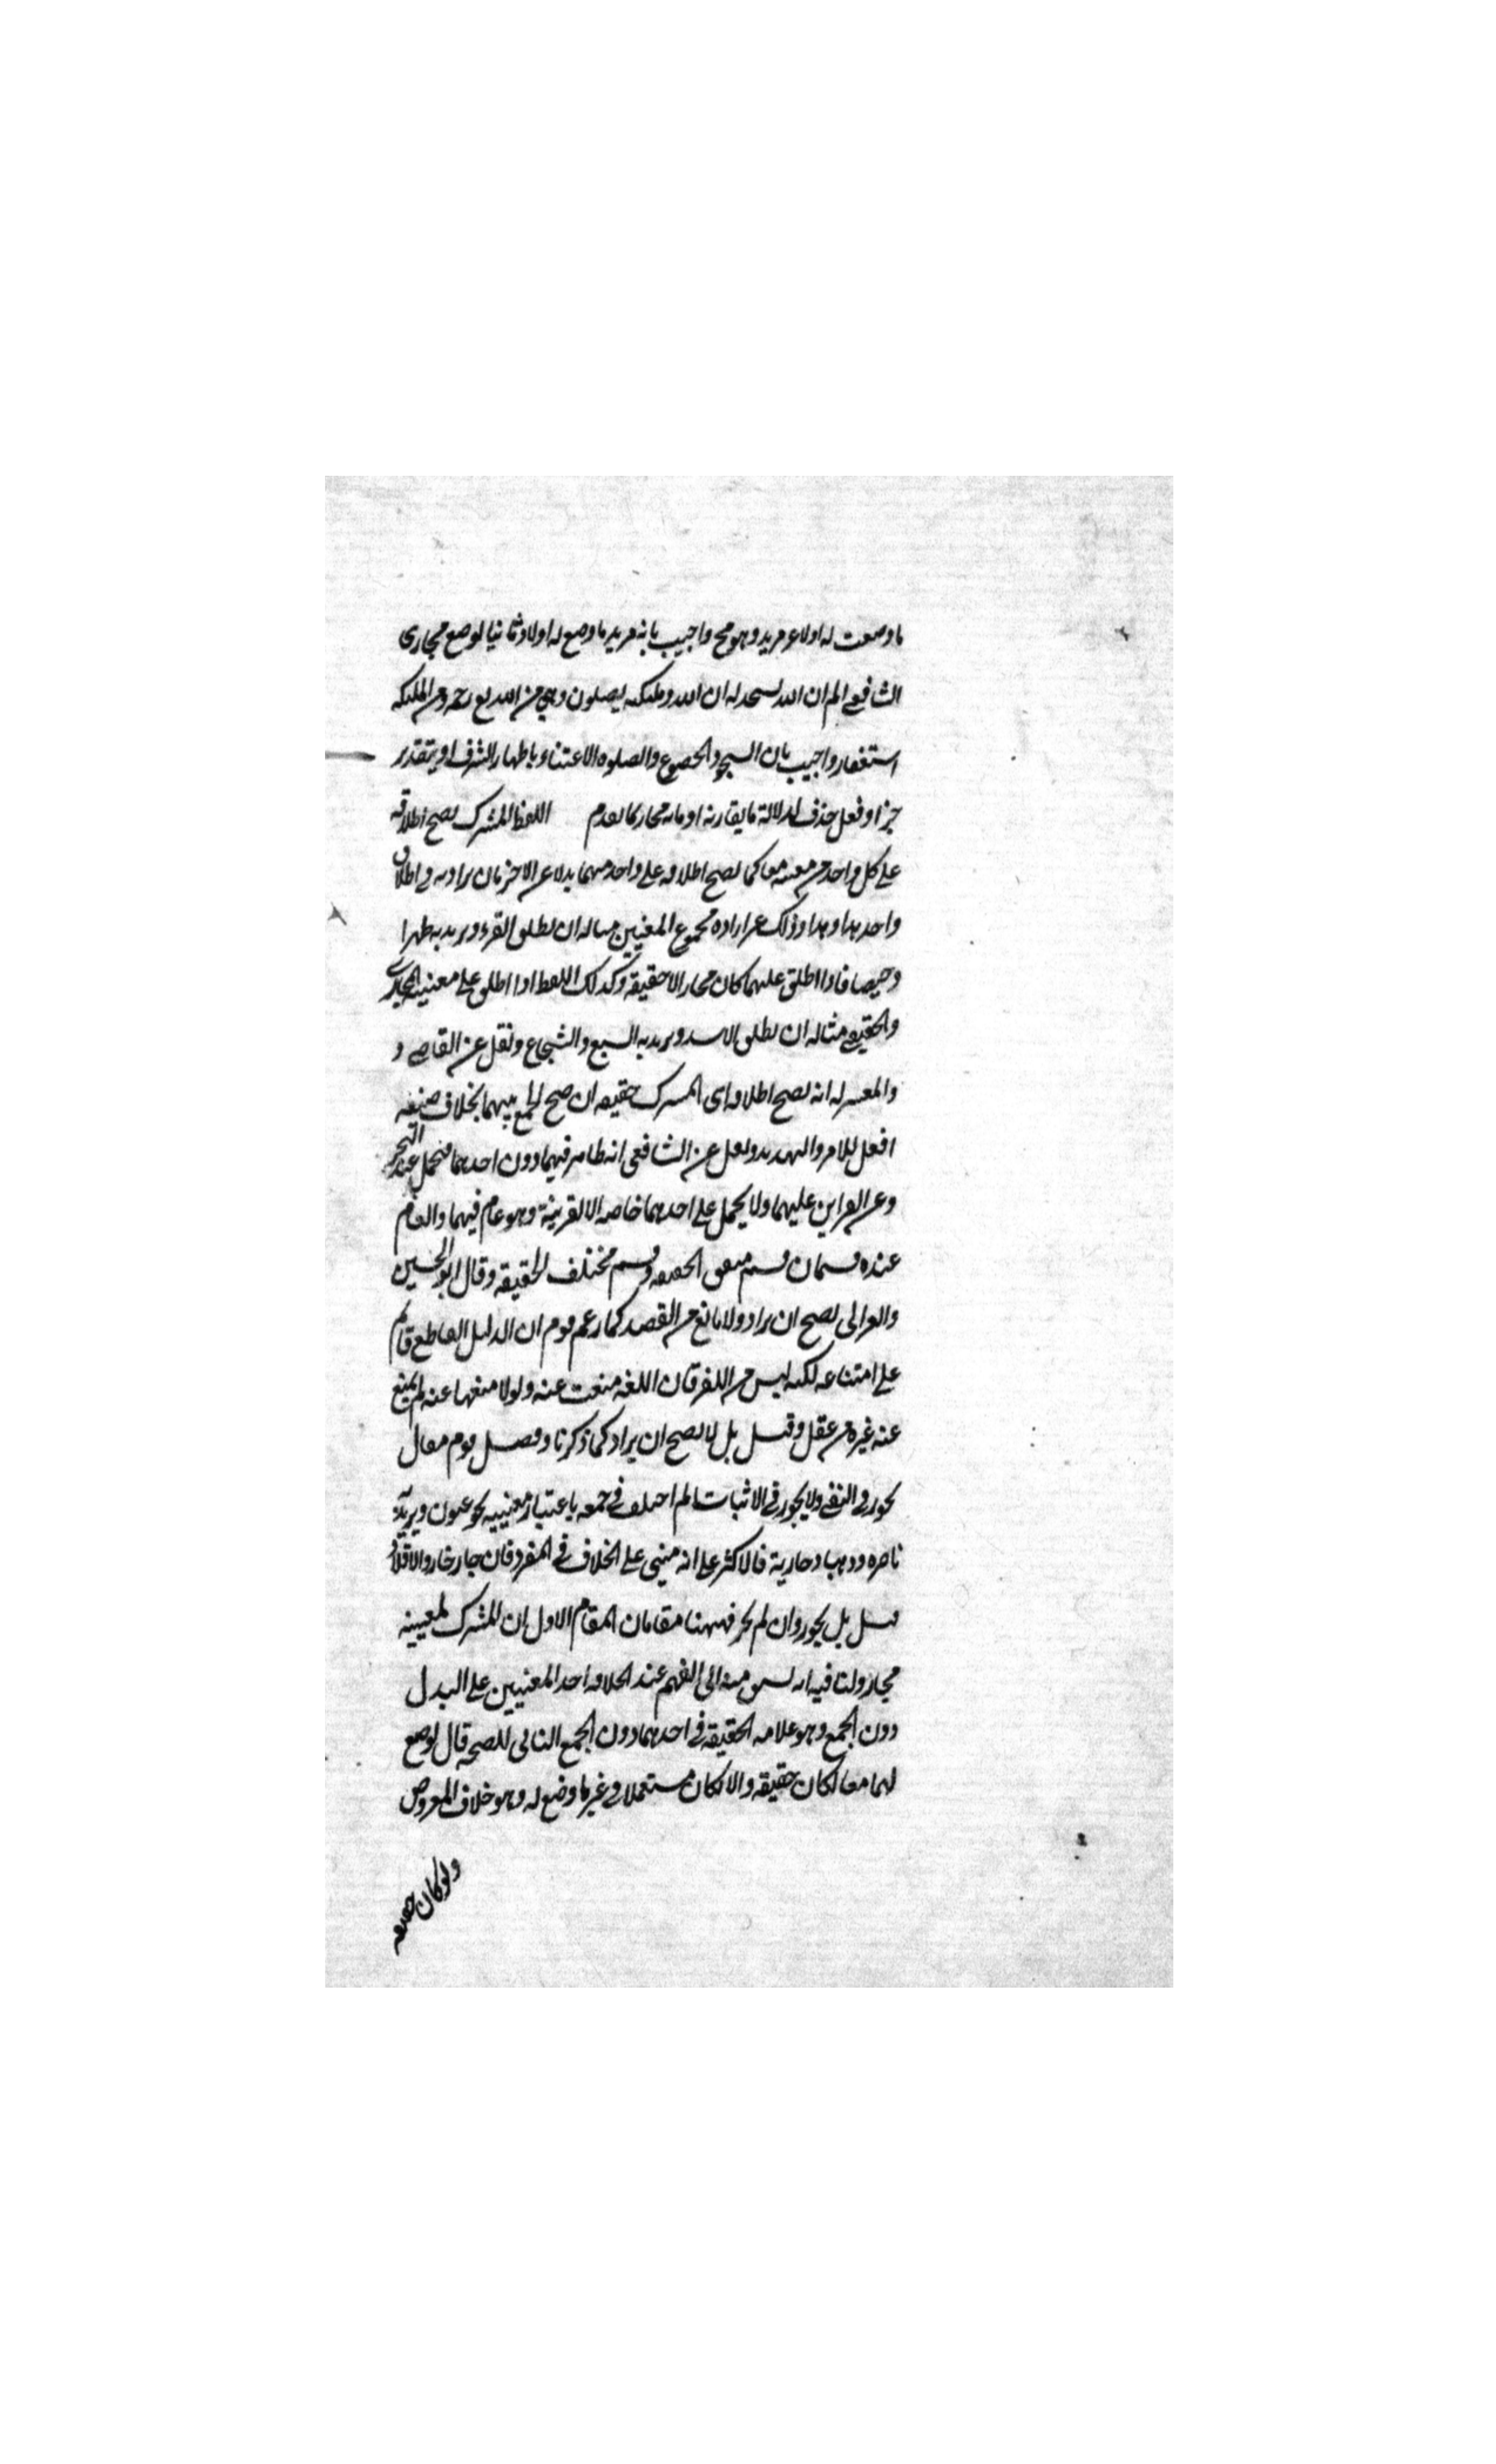 ما وضعت له اولا غير مريد وهو مح واجيب بانه مريد ما وضع له اولا وثانيا لوضع مجازى
الشافعى الم ان الله يسجد له ان الله وملئكته يصلون وهى من الله تع رحمة ومن الملئكة
استغفار واجيب بان السجود الخضوع والصلوة الاعتناء باظهار الشرف او بتقدير
خبر او فعل حذف لدلالة ما يقارنه او بانه مجاز كما تقدم اللفظ المشترك يصح اطلاقه
على كل واحد من معنييه معا كما يصح اطلاقه على واحد منهما بدلا عن الاخر بان يراد به فى اطلاق
واحد هذا وهذا وذلك غير ارادة مجموع المعنيين مثاله ان يطلق القرء ويريد به طهرا
وحيضا فاذا اطلق عليهما كان مجازا لا حقيقة وكذلك اللفظ اذا اطلق على معنييه المجازى
والحقيقى مثاله ان يطلق الاسد ويريد به السبع والشجاع ونقل عن القاضى و
والمعتزلة انه يصح اطلاقه اى المشترك حقيقة ان صح الجمع بينهما بخلاف صيغة
افعل للامر والتهديد ونقل عن الشافعى انه ظاهر فيهما دون احدهما فيحمل عند التجرد
وعن القراين عليهما ولا يحمل على احدهما خاصة الا لقرينة وهو عام فيهما والعام
عنده قسمان قسم متفق الحقيقة وقسم مختلف الحقيقة وقال ابو الحسين
والغزالى يصح ان يراد ولا مانع من القصد كما زعم قوم ان الدليل القاطع قائم
على امتناعه لكنه ليس من اللغة فان اللغة منعت عنه ولولا منعها عنه لم يمنع
عنه غيره من عقل وقيل بل لا يصح ان يراد كما ذكرنا وفصل قوم فقال
يجوز فى النفى ولا يجوز فى الاثبات ثم اختلف فى جمعه باعتبار معنييه نحو عيون ويريد به
باصرة وذهبا وجارية فالاكثر على انه مبنى على الخلاف فى المفرد فان جاز جاز والا فلا و
قيل بل يجوز وان لم يجز فههنا مقامان المقام الاول ان المشترك لمعنييه
مجاز ولنا فيه انه يسبق منه الى الفهم عند اطلاقه احد المعنيين على البدل
دون الجمع وهو علامة الحقيقة فى احدهما دون الجمع النافى للصحة قال لو وضع
لهما معا لكان حقيقة والا لكان مستعملا فى غير ما وضع له وهو خلاف المفروض
ولو كان حقيقة